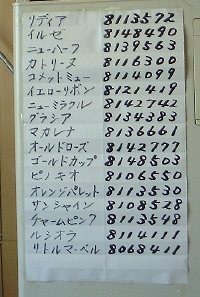 リディア 8113572
イルゼ 8148490
ニューハーフ 8139563
カトリーヌ 8116300
コメットミュー 8114099
イエローリボン 8121419
ニューミラクル 8142742
グラシア 8134383
マカレナ 8136661
オールドローズ 8142777
ゴールドカップ 8148503
ピノキオ 8106550
オレンジパレット 8113530
サンシャイン 8108528
チャームピンク 8113548
ルシオラ 8114111
リトルマーベル 8068411